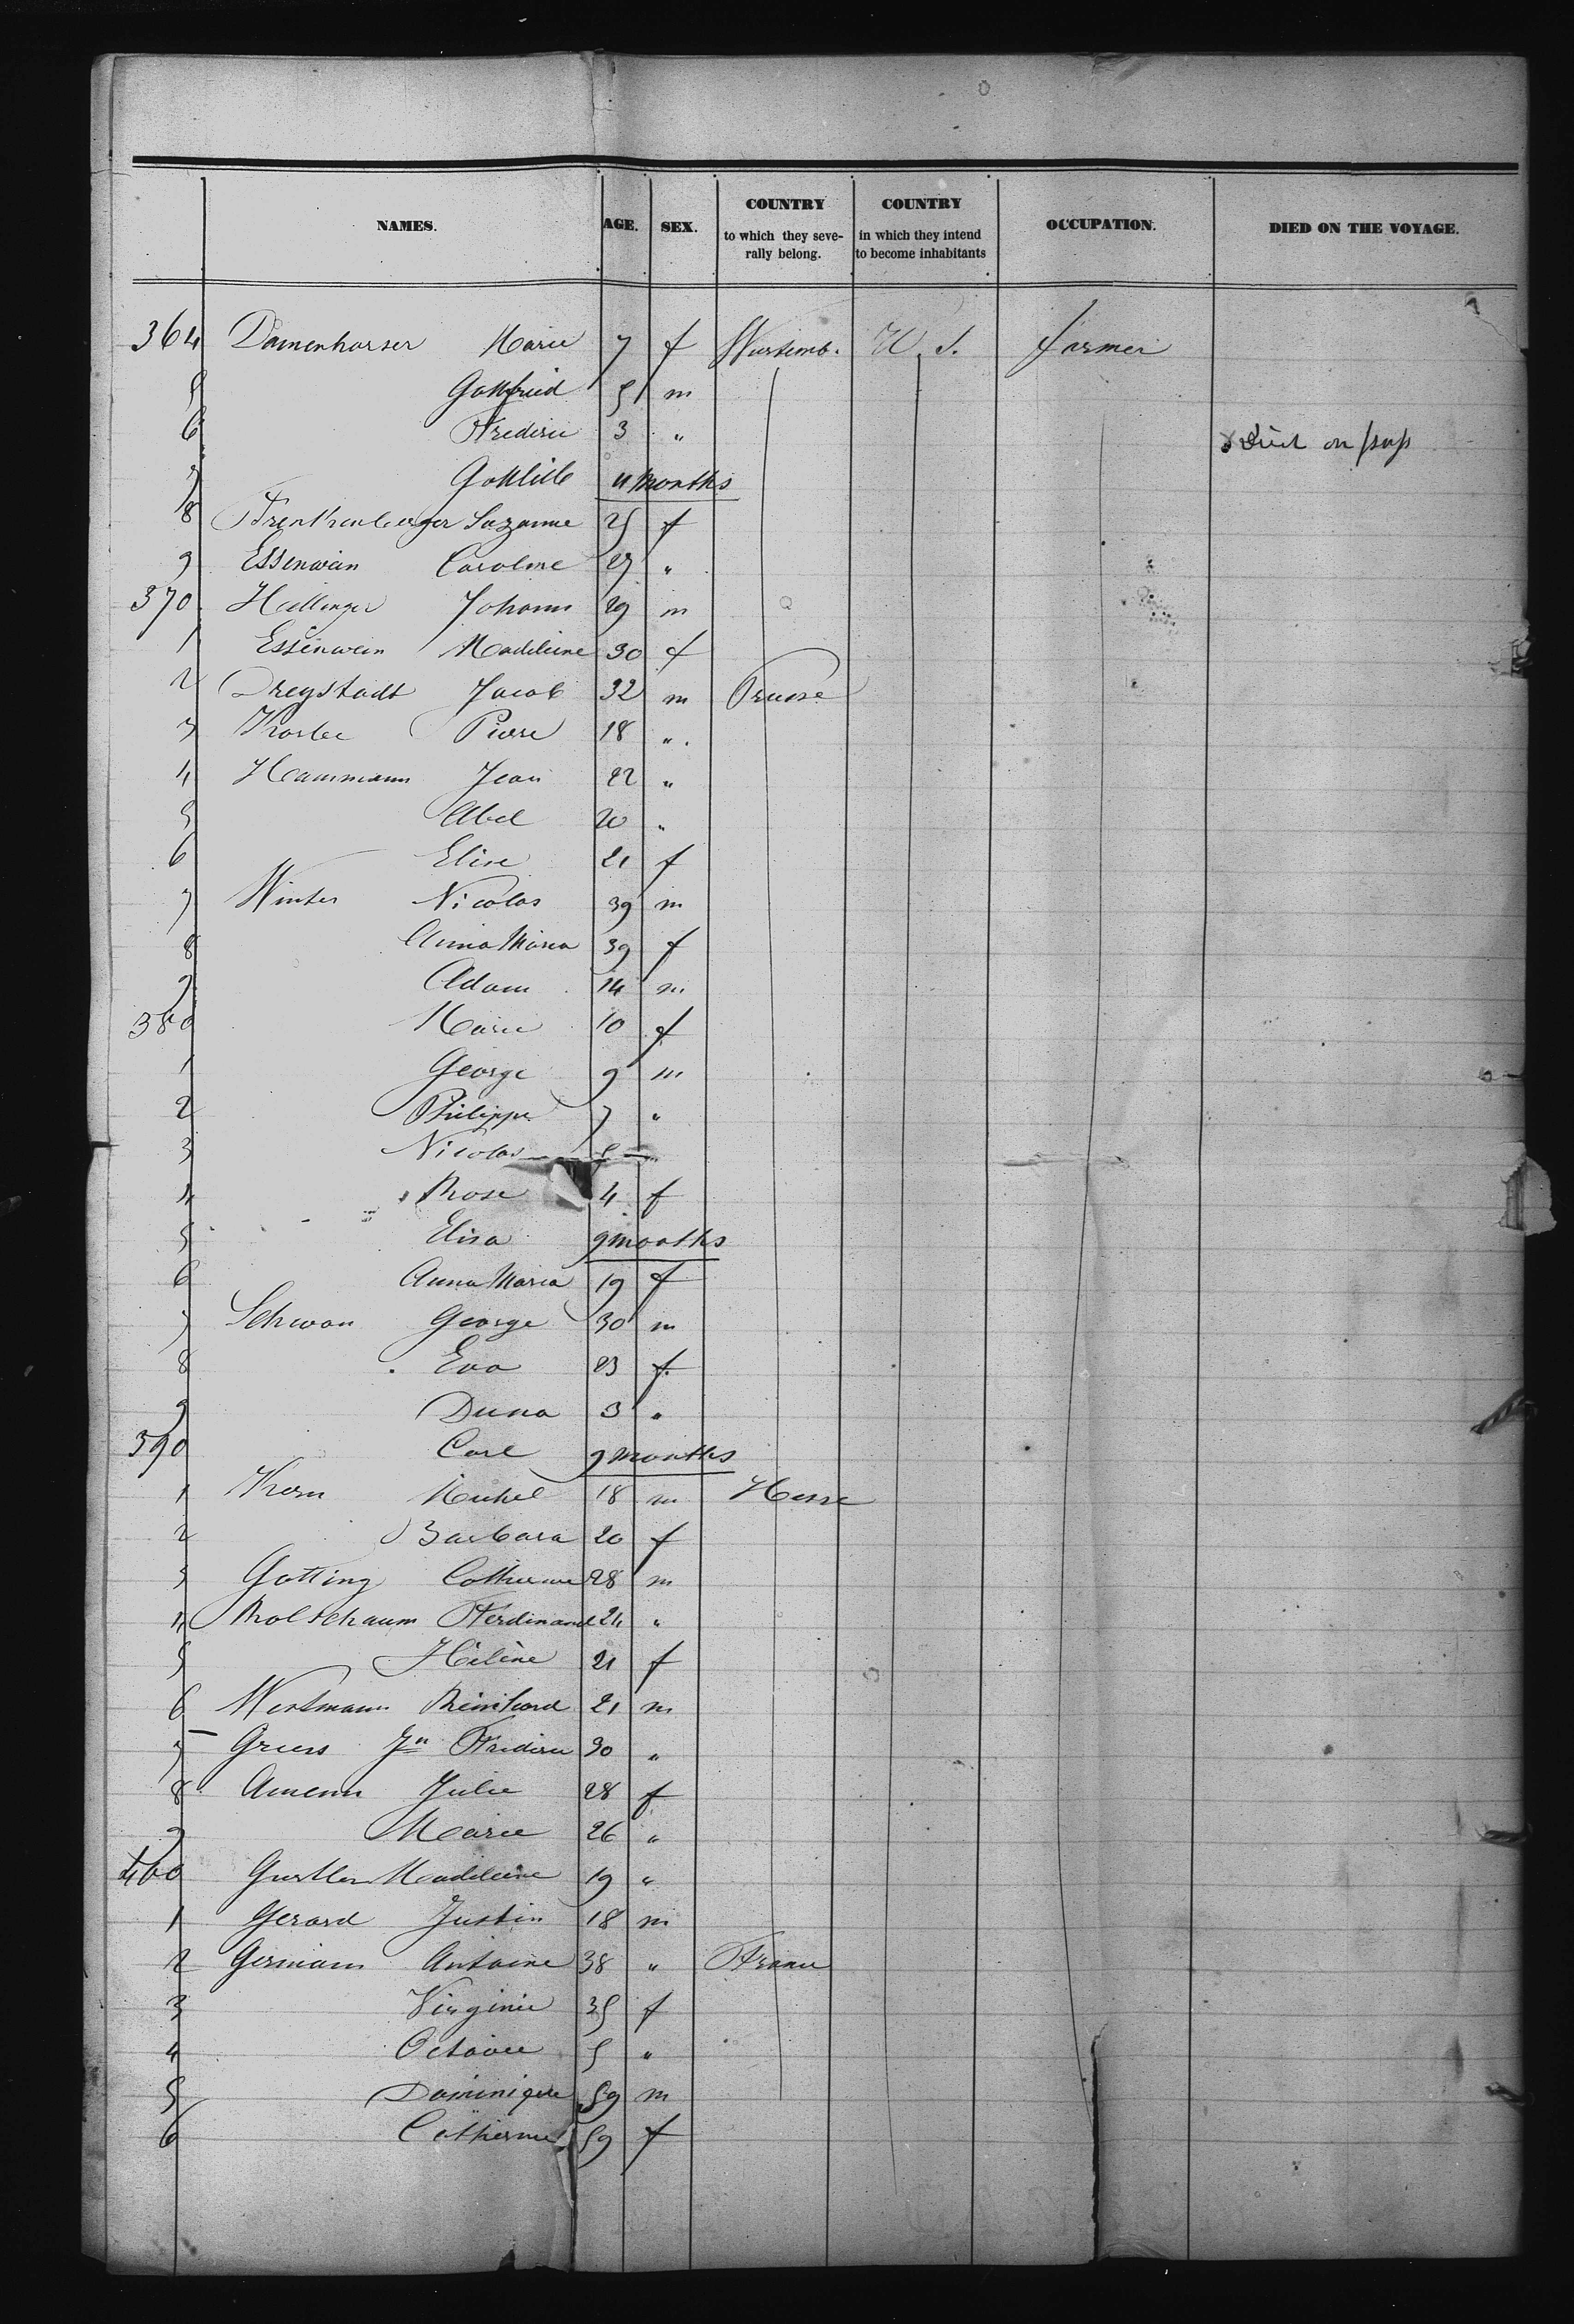 NAMES. AGE. SEX. COUNTRY to which they severally belong. COUNTRY in which they intend to become inhabitants OCCUPATION. DIED ON THE VOYAGE.
364 Damenhauser Marie 7 f Wurtemb. U. S. farmer
5 Gottfried 5 m
6 Frederic 3 " died on
7 Gottlieb 11 months
8 Suzanne 25 f
9 Essenwein Caroline 27 "
370 Hellinger Johann 29 m
1 Essenwein Madeleine 30 f
2 Dreystadt Jacob 32 m Prusse
3 Pierre 18 "
4 Haummann Jean 22 "
5 Abel 20 "
6 Elise 21 f
7 Winter Nicolas 39 m
8 Anna Maria 39 f
9 Adam 14 m
380 Marie 10 f
1 George 9 m
2 Philippe 7 "
3 Nicolas 5
4 Rose 4 f
5 Elisa 9 months
6 Anna Maria 19 f
7 Schwan George 30 m
8 Eva 23 f
9 3 "
390 Carl 9 months
1 Kern Michel 18 m Hesse
2 Barbara 20 f
3 Gotting Catherine 28 m
4 Ferdinand 24 "
5 Hélène 21 f
6 Reinhard 21 m
7 Jn Frederic 30 "
8 Julie 28 f
9 Marie 26 "
400 Madeleine 19 "
1 Gerard Justin 18 m
2 Germain Antoine 38 " France
3 Virginie 35 f
4 Octavie 5 "
5 Dominique 59 m
6 Catherine 59 f